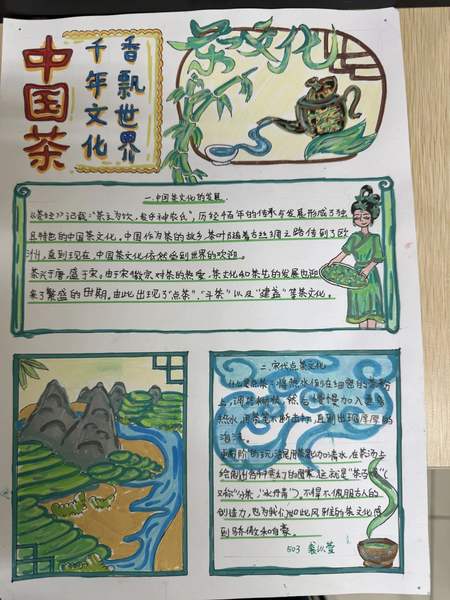 中国茶
千年文化
香飘世界
茶文化
一.中国茶文化的发展
《茶经》记载:"茶之为饮,发乎神农氏",历经千百年的传承与发展形成了独
具特色的中国茶文化。中国作为茶的故乡,茶叶随着古丝绸之路传到了欧
洲,直到现在,中国茶文化依然受到世界的欢迎。
茶兴于唐,盛于宋。由于宋徽宗对茶的热爱,茶文化和茶生的发展也迎
来了繁盛的时期。由此出现了"点茶"、"斗茶"以及"建盏"等茶文化。
二.宋代点茶文化
什么是点茶:将热水倒在细密的茶粉
上,调成糊状,然后慢慢加入适量
热水,用茶筅不断击打,直到出现厚厚的
泡沫。
更高阶的玩法是用茶匙加清水,在茶汤上
绘制出各种奇幻的图案,这就是"茶百戏"(
又称"分茶"、"水丹青"),不得不佩服古人的
创造力,也为我们如此风雅的茶文化感
到骄傲和自豪。
503